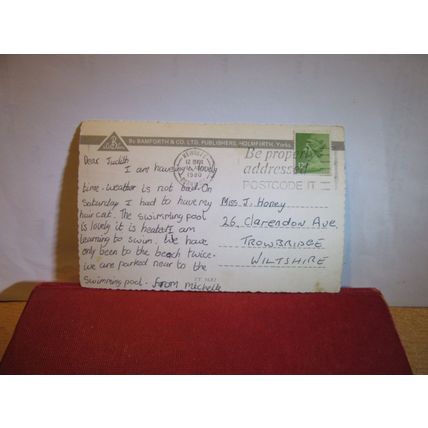 By BAMFORTH & CO. LTD. PUBLISHERS, HOLMFIRTH, Yorks.
Dear Judith
I am having a lovely
time. weather is not bad. On
Saturday I had to have my
hair cat. The swimming pool
is lovely it is heated I am
learning to swim. We have
only been to the beach twice.
we are parked near to the
swimming pool. from michelle
1980
Be properly
addressed
POSTCODE IT
Miss J. Honey
26, Clarendon Ave,
TROWBRIDGE
WILTSHIRE